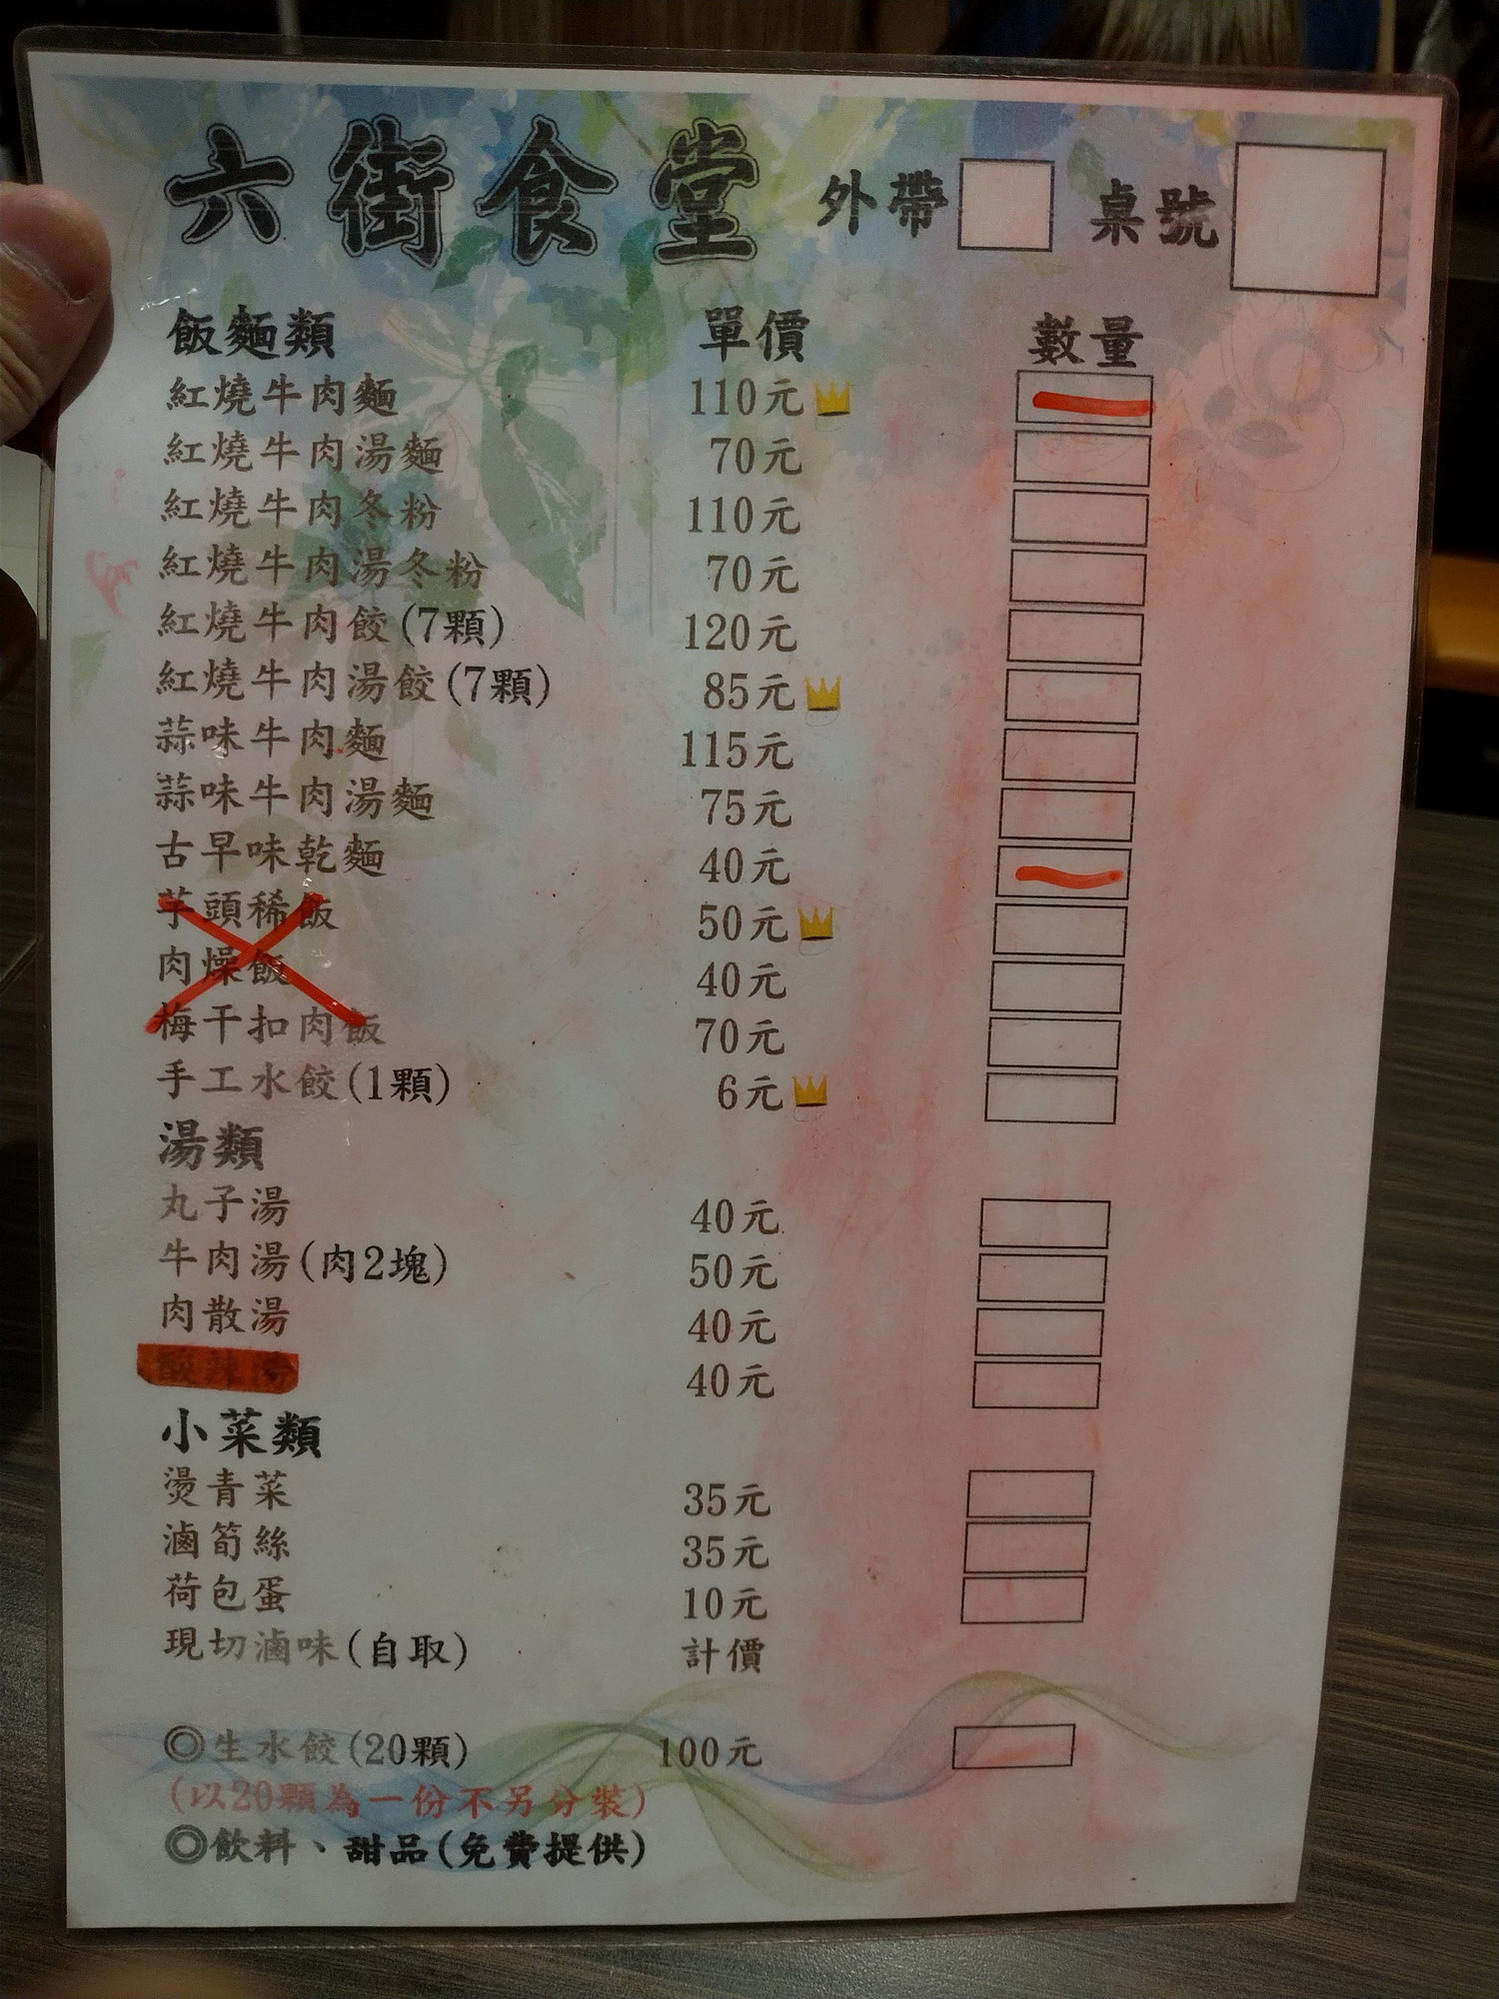 六街食堂 外帶 桌號
飯麵類 單價 數量
紅燒牛肉麵 110元
紅燒牛肉湯麵 70元
紅燒牛肉冬粉 110元
紅燒牛肉湯冬粉 70元
紅燒牛肉餃(7顆) 120元
紅燒牛肉湯餃(7顆) 85元
蒜味牛肉麵 115元
蒜味牛肉湯麵 75元
古早味乾麵 40元
芋頭稀飯 50元
肉燥飯 40元
梅干扣肉飯 70元
手工水餃(1顆) 6元
湯類
丸子湯 40元
牛肉湯(肉2塊) 50元
肉散湯 40元
酸辣湯 40元
小菜類
燙青菜 35元
滷筍絲 35元
荷包蛋 10元
現切滷味(自取) 計價
◎生水餃(20顆) 100元
(以20顆為一份不另分裝)
◎飲料、甜品(免費提供)